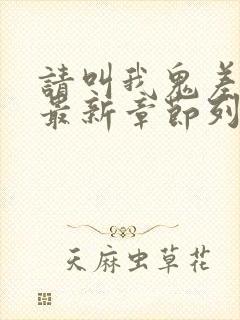 請叫我鬼差
最新章節列
天麻虫草花